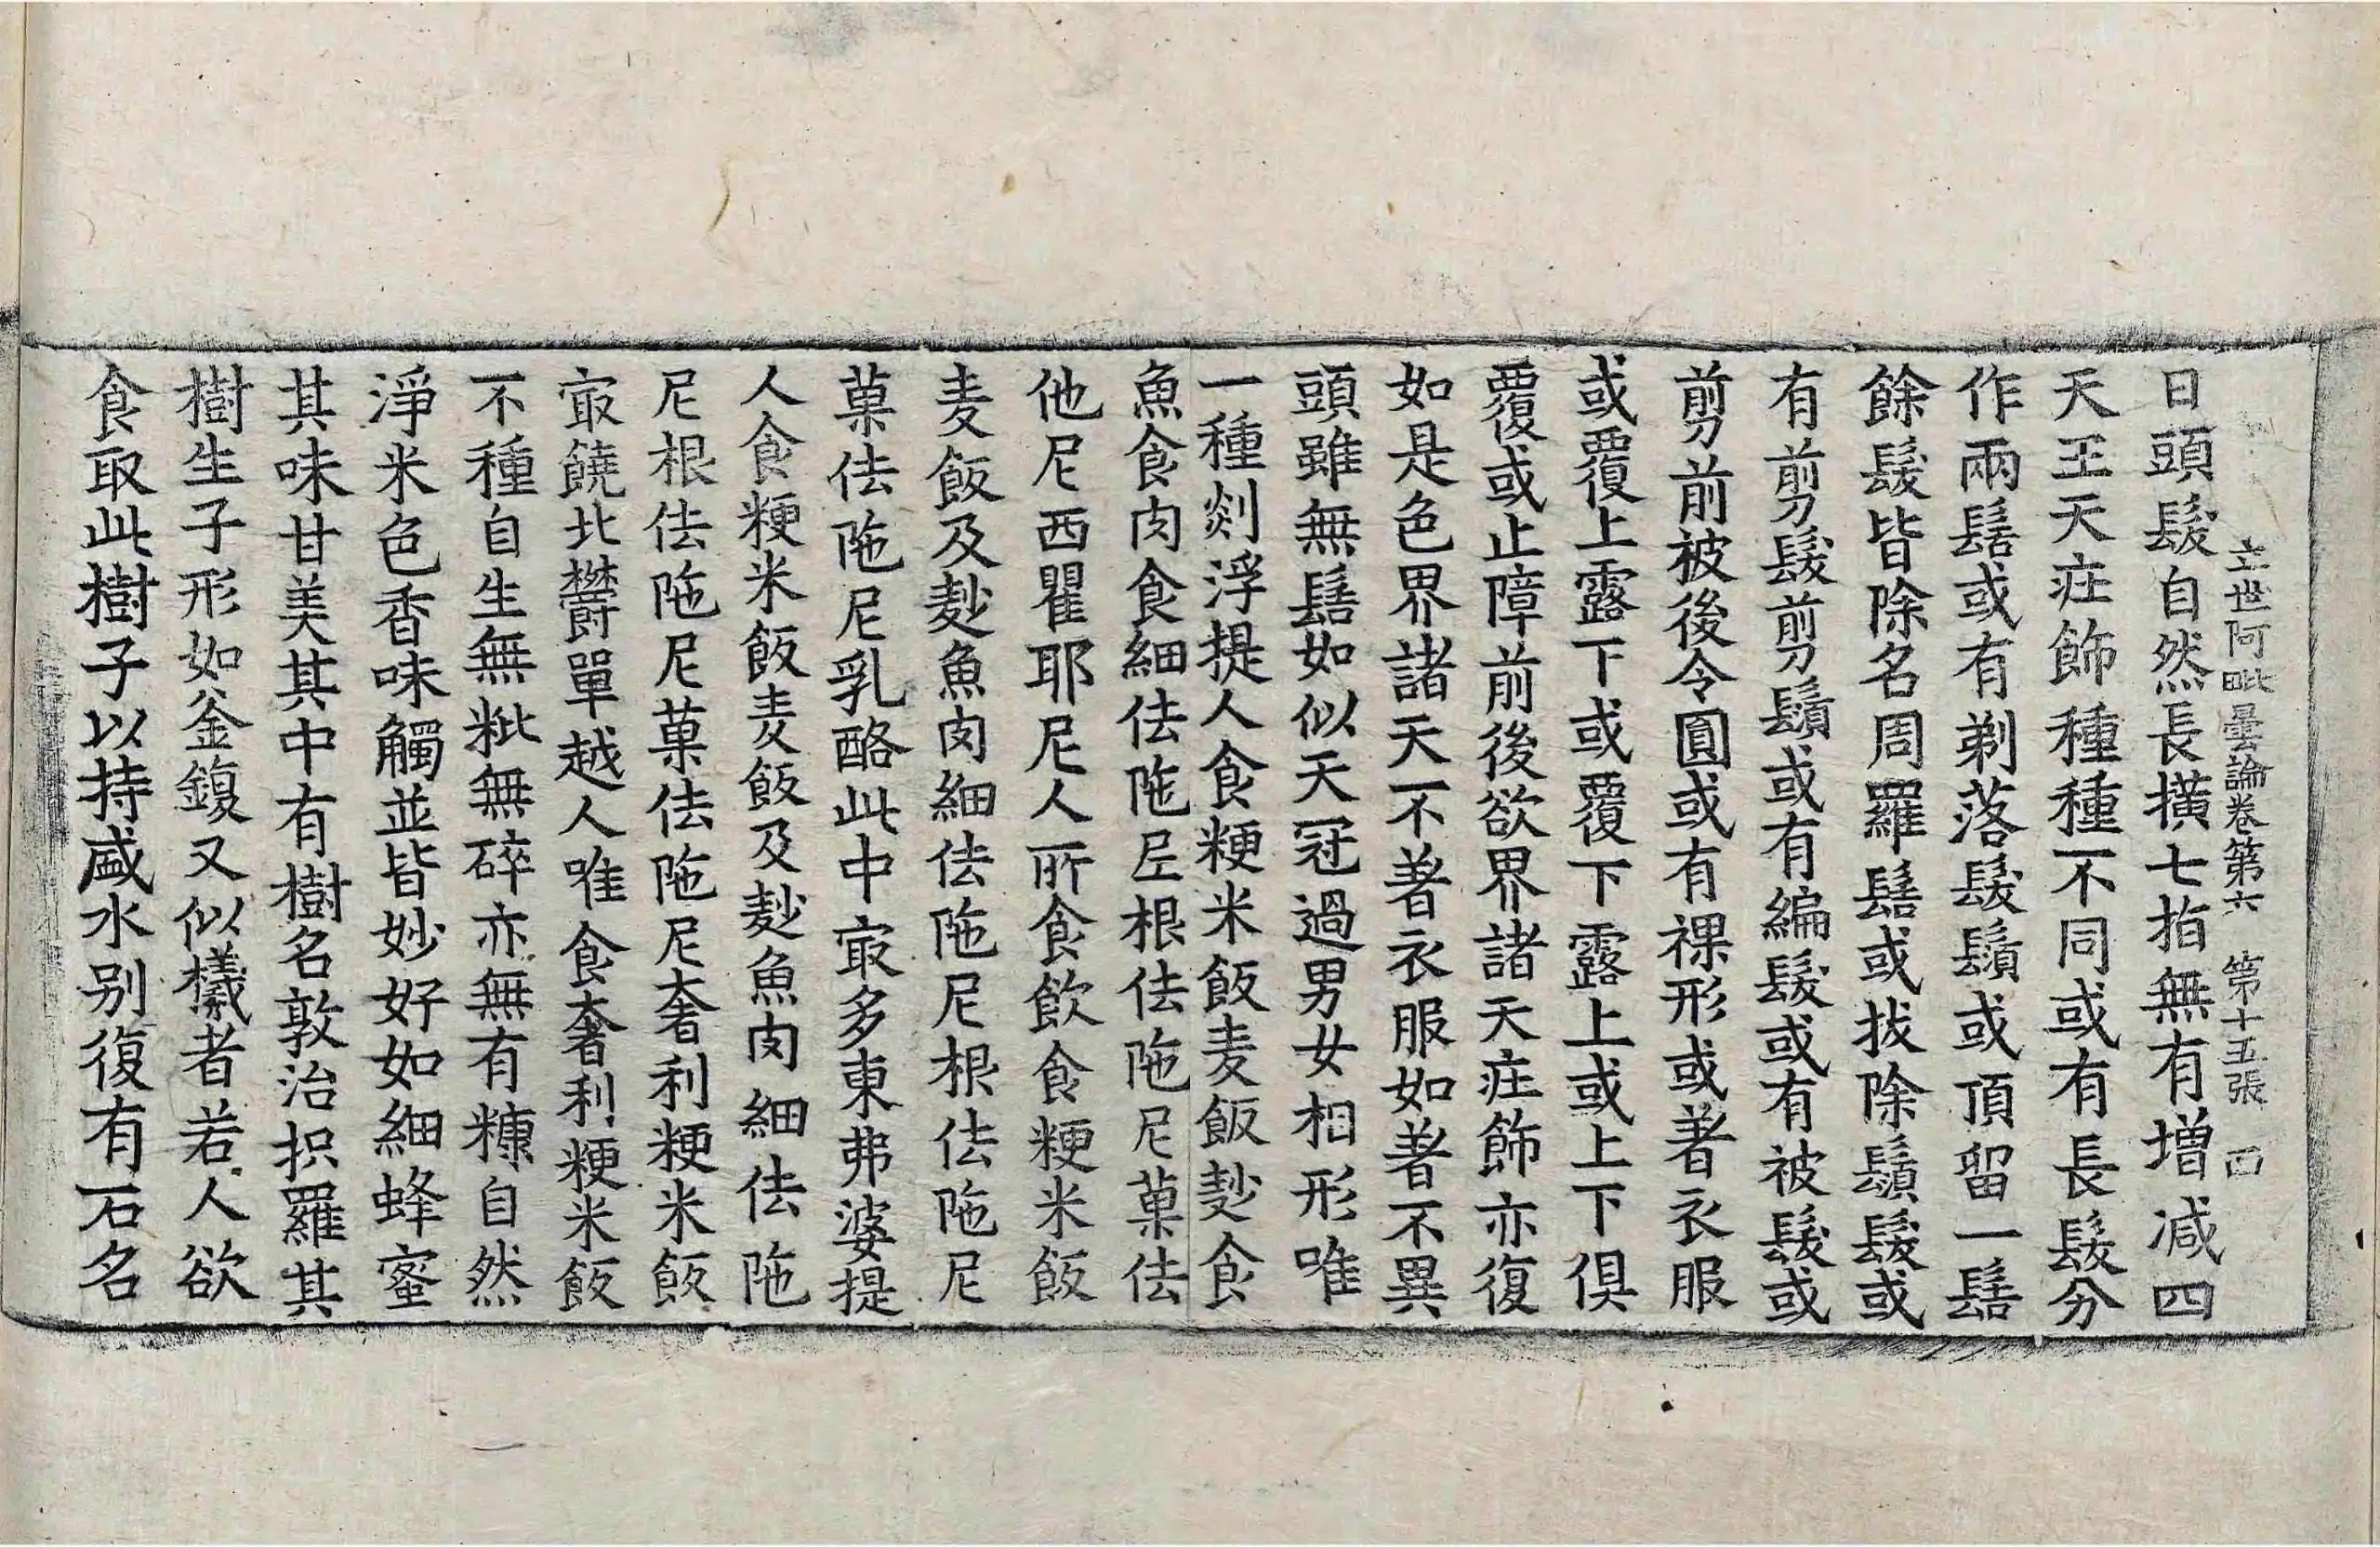 立世阿毗曇論卷第六 第十五張 四
日頭髮自然長橫七指無有增減四
天王天疘飾種種不同或有長髮分
作兩髻或有剃落髮鬚或頂留一髻
餘髮皆除名周羅髻或拔除鬚髮或
有剪髮剪鬚或有編髮或有被髮或
剪前被後令圓或有裸形或著衣服
或覆上露下或覆下露上或上下俱
覆或止障前後欲界諸天疘飾亦復
如是色界諸天不著衣服如著不異
頭雖無髻如似天冠過男女相形唯
一種剡浮提人食粳米飯麦飯麨食
魚食肉食細佉陁尼根佉陁尼菓佉
他尼西瞿耶尼人所食飲食粳米飯
麦飯及麨魚肉細佉陁尼根佉陁尼
菓佉陁尼乳酪此中冣多東弗婆提
人食粳米飯麦飯及麨魚肉細佉陁
尼根佉陁尼菓佉陁尼奢利粳米飯
冣饒北欝單越人唯食奢利粳米飯
不種自生無粃無碎亦無有糠自然
淨米色香味觸並皆妙好如細蜂蜜
其味甘美其中有樹名敦治抧羅其
樹生子形如釜鍑又似㰕者若人欲
食取此樹子以持盛水别復有石名